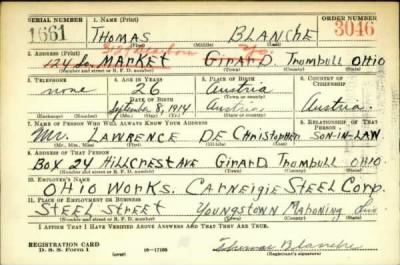 SERIAL NUMBER 1. NAME (Print) ORDER NUMBER
1661 THOMAS BLANCHE 3046
(First) (Middle) (Last)
2. ADDRESS (Print)
124 So. MARKET GIRARD TrumbuLL OHIO
(Number and street or R. F. D. number) (Town) (County) (State)
3. TELEPHONE 4. AGE IN YEARS 5. PLACE OF BIRTH 6. COUNTRY OF CITIZENSHIP
none 26 Austria
DATE OF BIRTH
September 8, 1914 Austria Austria.
(Mo.) (Day) (Yr.) (State or country)
7. NAME OF PERSON WHO WILL ALWAYS KNOW YOUR ADDRESS 8. RELATIONSHIP OF THAT PERSON
Mr. LAWRENCE DE Christopher SON-IN-LAW
(Mr., Mrs., Miss) (First) (Middle) (Last)
9. ADDRESS OF THAT PERSON
BOX 24 HILLCREST AVE GIRARD TrumbuLL OHIO
(Number and street or R. F. D. number) (Town) (County) (State)
10. EMPLOYER'S NAME
OHIO WORKS. CARNEIGIE STEEL CORP.
11. PLACE OF EMPLOYMENT OR BUSINESS
STEEL STREET YOUNGSTOWN MAHONING
(Number and street or R. F. D. number) (Town) (County) (State)
I AFFIRM THAT I HAVE VERIFIED ABOVE ANSWERS AND THAT THEY ARE TRUE.
REGISTRATION CARD
D. S. S. Form 1 (over) 16—17105 Thomas Blanche
(Registrant's signature)